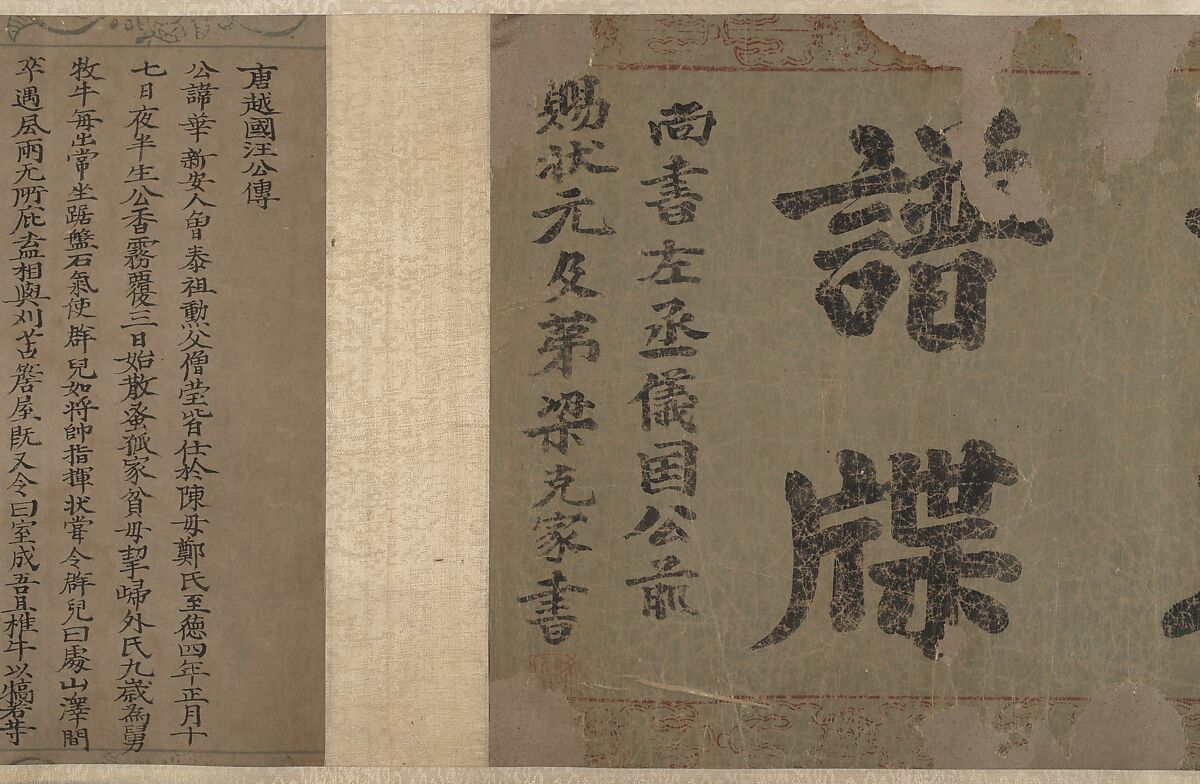 譜牒
尚書左丞儀囯公前
賜狀元及第梁克家書
唐越國汪公傳
公諱華新安人曾泰祖勲父僧瑩皆仕於陳母鄭氏至徳四年正月十
七日夜半生公香霧覆三日始散蚤孤家貧母挈歸外氏九歳為舅
牧牛每出常坐踞盤石氣使群兒如将帥指揮状嘗令群兒曰處山澤間
卒遇凨雨无所庇盍相與刈苫簷屋既又令曰室成吾且椎牛以犒若等